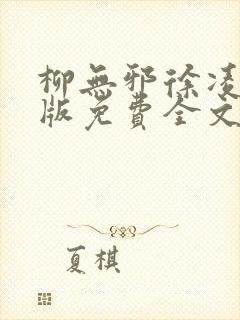 柳無邪徐凌
版免費全文
夏棋